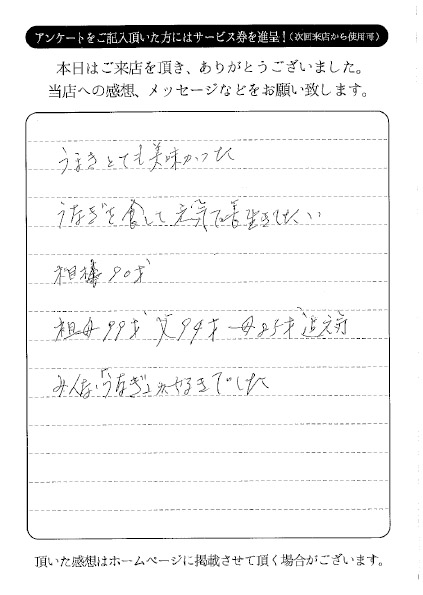 アンケートをご記入頂いた方にはサービス券を進呈！（次回来店から使用可）
本日はご来店を頂き、ありがとうございました。
当店への感想、メッセージなどをお願い致します。
うまきとても美味かった
うなぎを食して元気で長生きしたい
90才
祖母99才 父94才 母85才迄元気
みんな「うなぎ」が好きでした
頂いた感想はホームページに掲載させて頂く場合がございます。